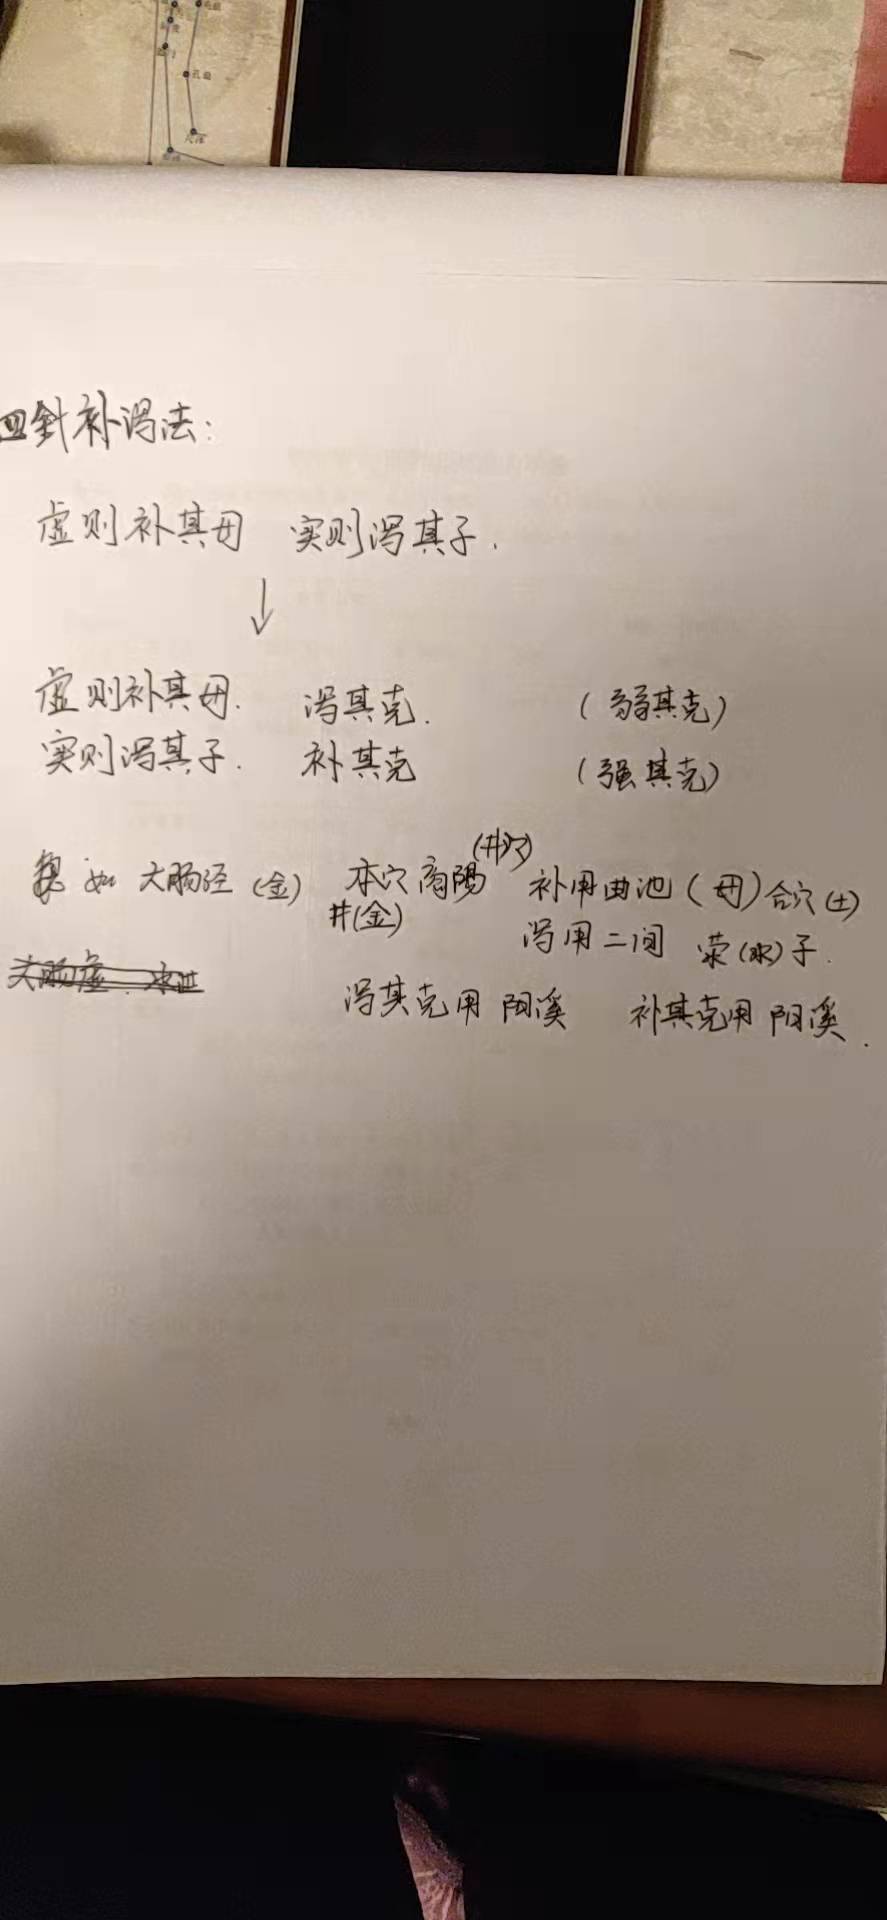 孔最
四針补泻法:
虚则补其母 实则泻其子.
虚则补其母. 泻其克. (弱其克)
实则泻其子. 补其克 (强其克)
如 大肠经 (金) 本穴商陽 (井穴) 补用曲池 (母) 合穴 (土)
井(金) 泻用二间 荥(水)子.
泻其克用 阳溪 补其克用 阳溪.